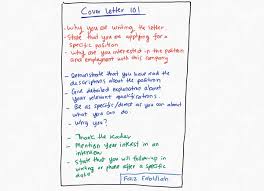 Cover Letter 101
- Why you are writing the letter
- State that you are applying for a
specific position
- Why are you interested in the position
and employment with this company
- Demonstrate that you have read the
descriptions about the position
- Give detailed explanation about
your relevant qualifications
- Be as specific/direct as you can about
what you can do
- Why you?
- Thank the reader
- Mention your interest in an
interview
- State that you will follow-up in
writing or phone after a specific
date
Faiz Fablillah